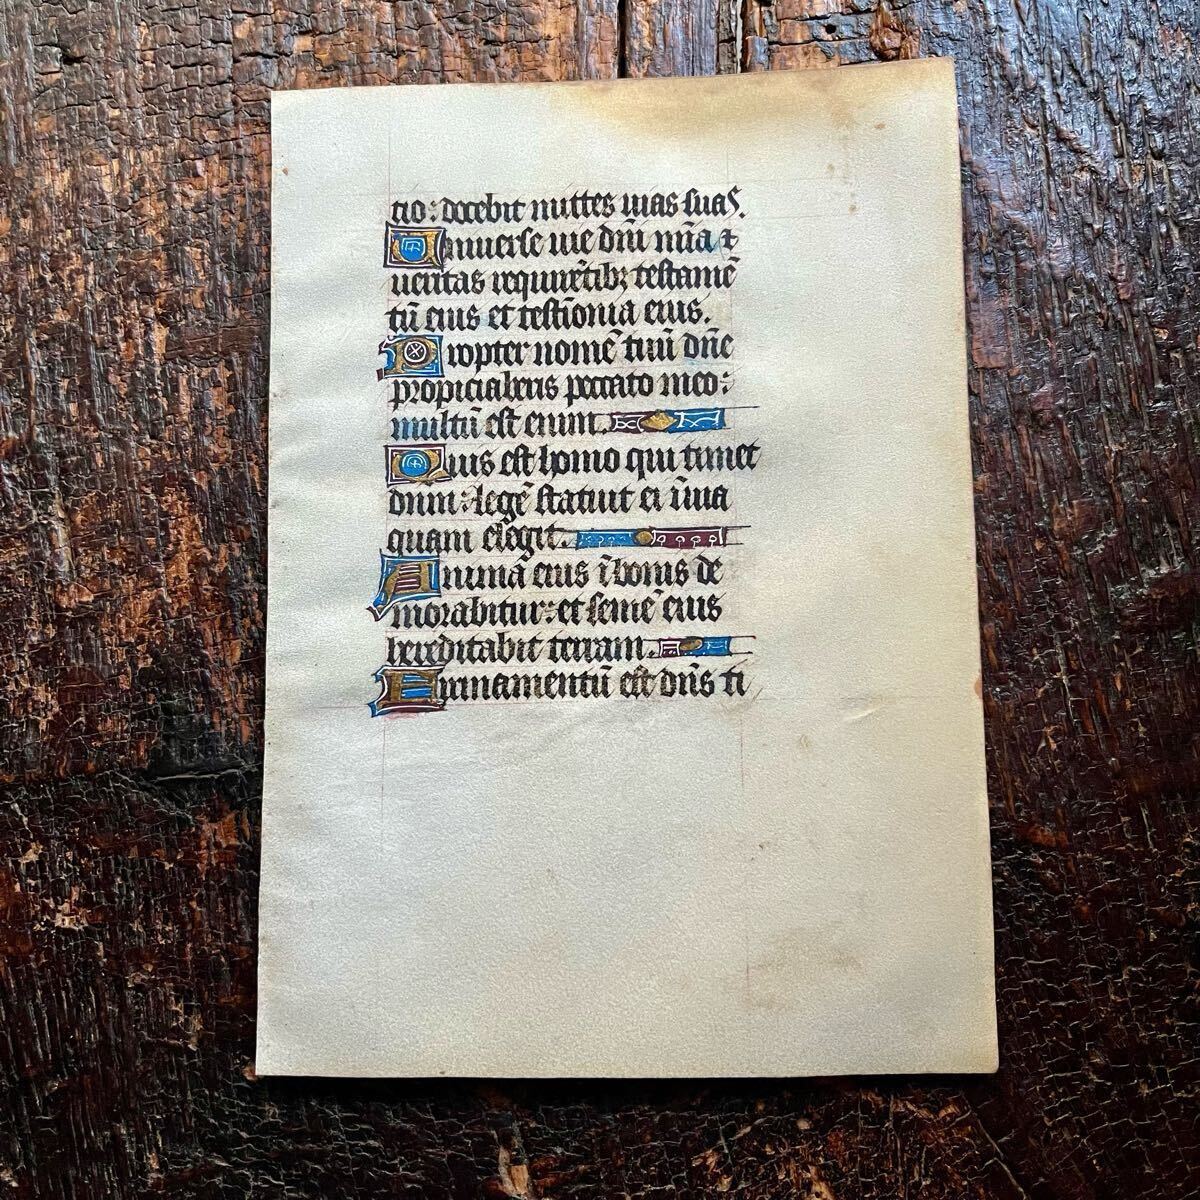 cio: docebit mittes uias suas.
Uniuerse uie dn̄i mīa ⁊
ueritas requirētibꝫ testamē
tū eius et testīonia eius.
Propter nomē tuū dn̄e
propiciaberis peccato meo:
multū est enim.
Quis est homo qui timet
dnm: legē statuit ei ī uia
quam elegit.
Animā eius ī bonis de
morabitur: et semē eius
hereditabit terram.
Firmamentū est dn̄s ti